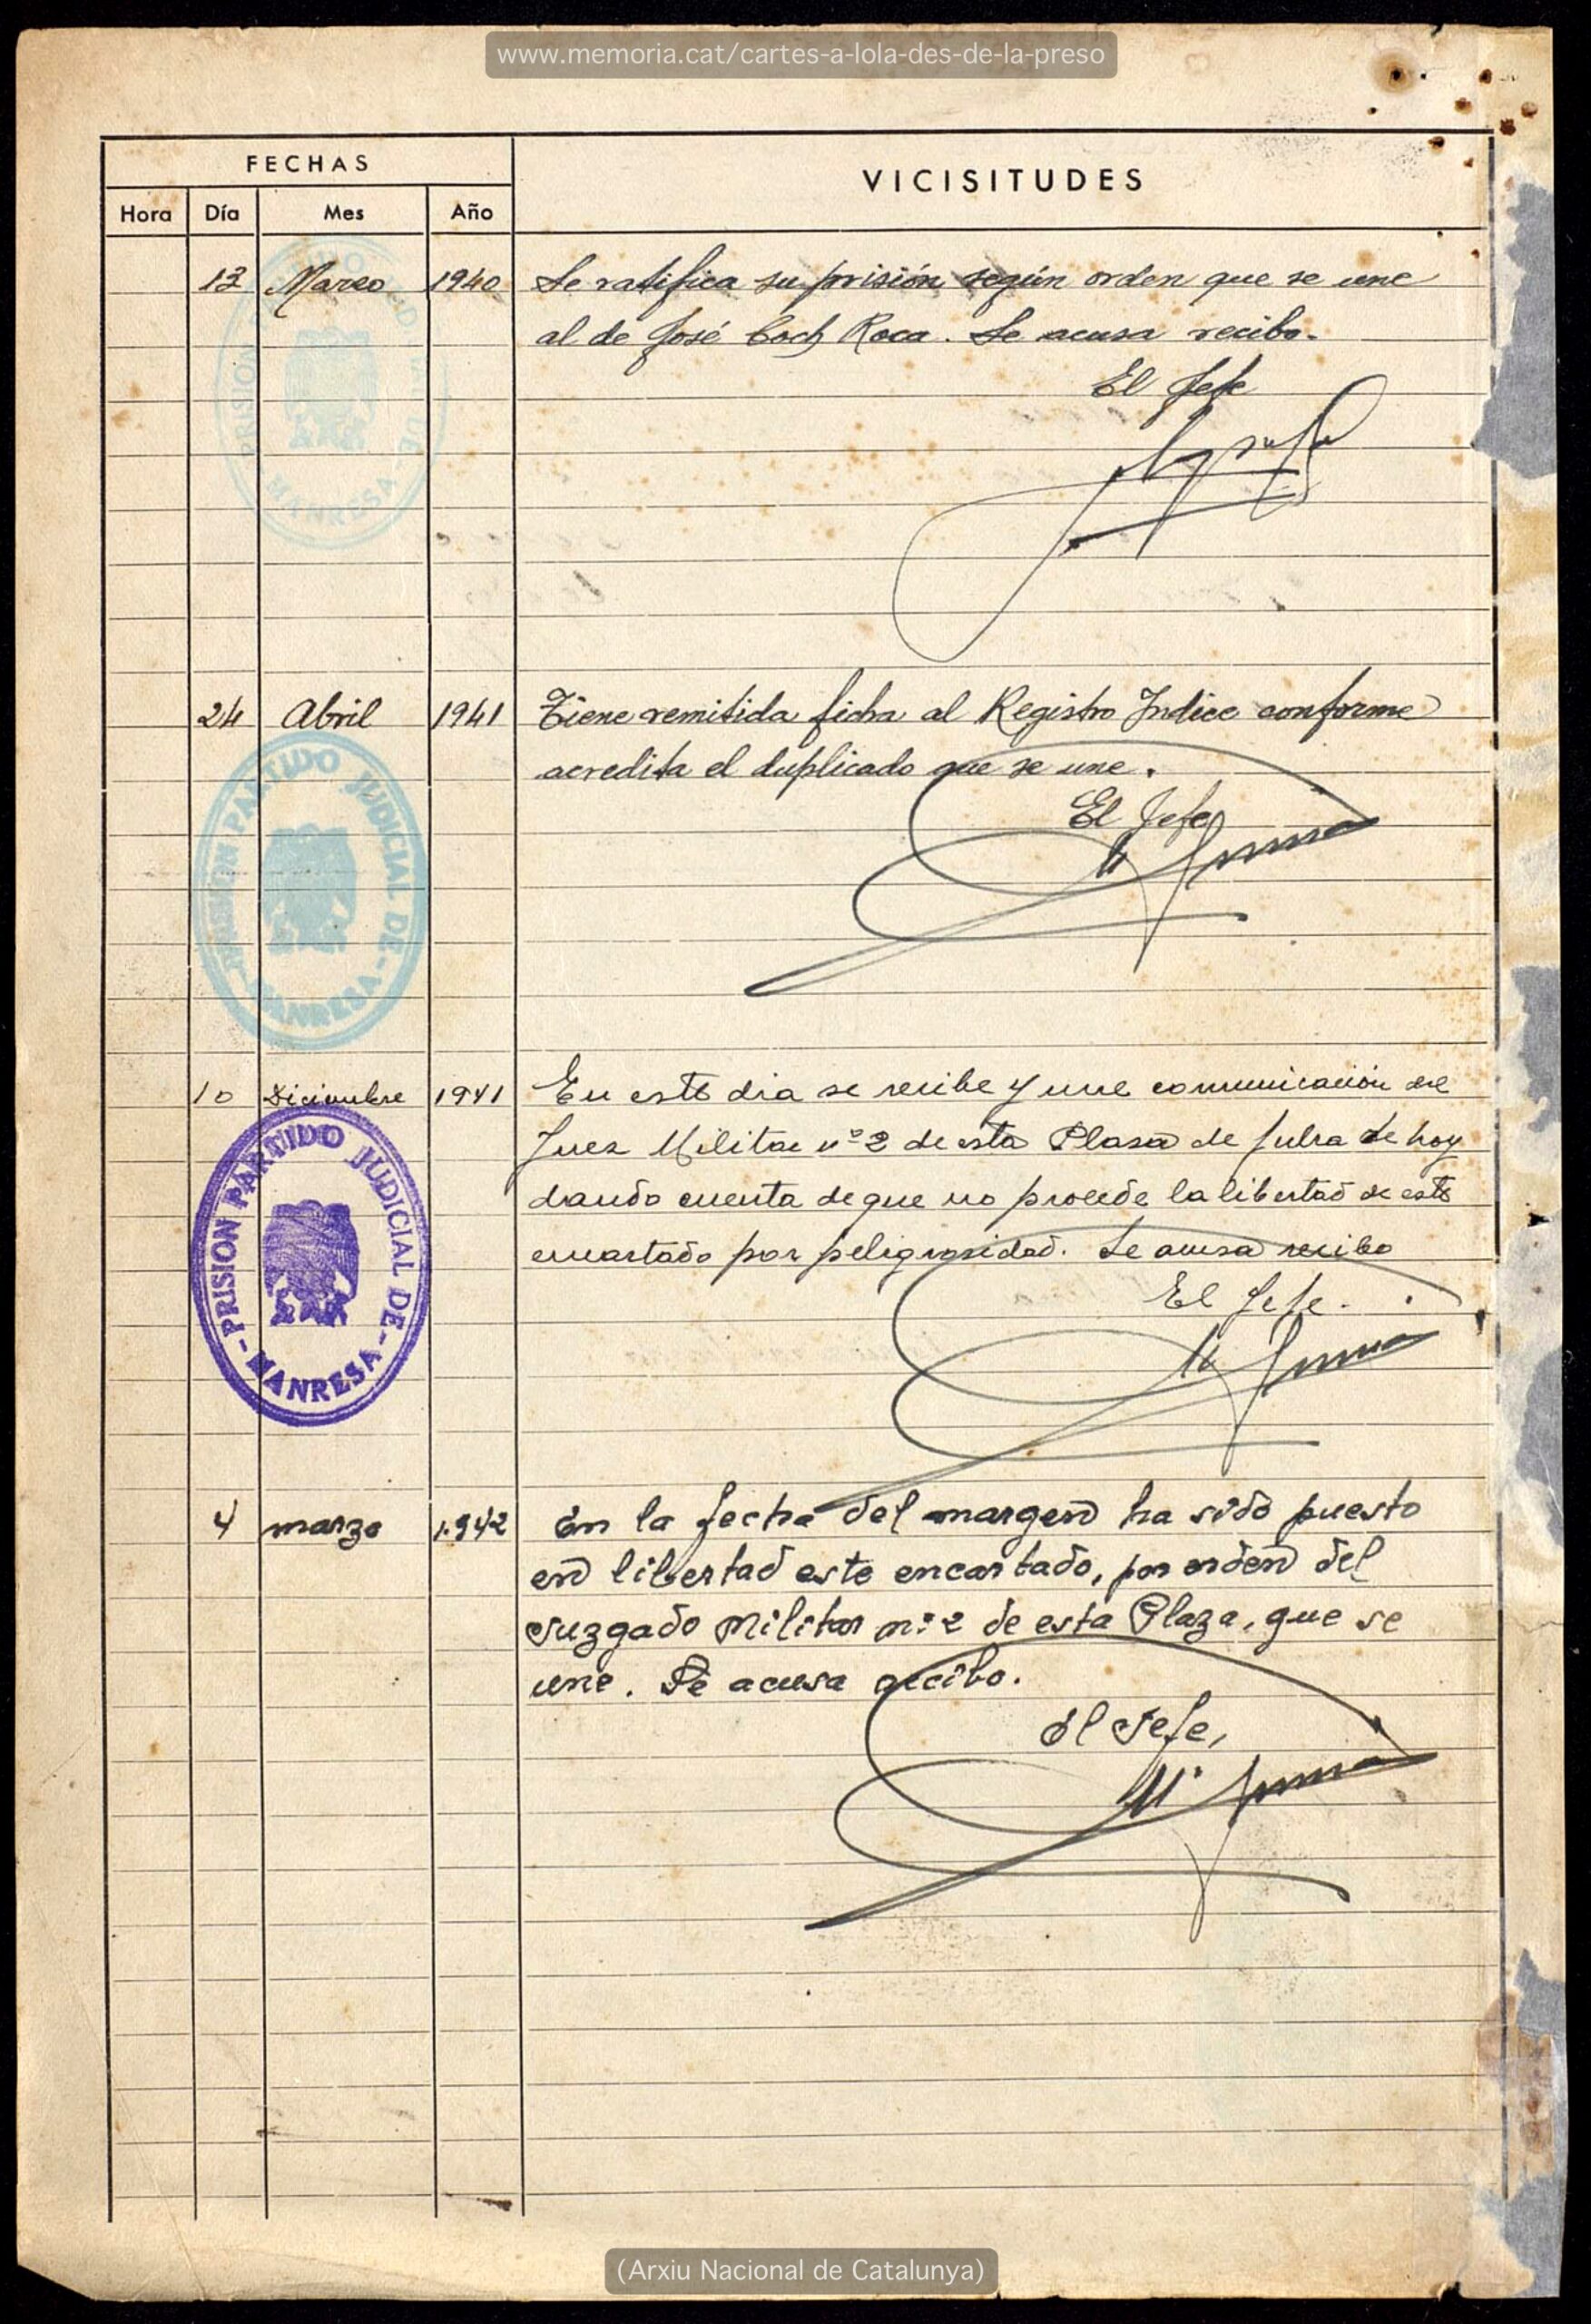 www.memoria.cat/cartes-a-lola-des-de-la-preso
FECHAS
VICISITUDES
Hora Día Mes Año
13 Marzo 1940 Se ratifica su prisión según orden que se une
al de José Coch Roca. Se acusa recibo.
El Jefe
PRISION PARTIDO JUDICIAL DE MANRESA
24 Abril 1941 Tiene remitida ficha al Registro Indice conforme
acredita el duplicado que se une.
El Jefe
PRISION PARTIDO JUDICIAL DE - MANRESA -
10 Diciembre 1941 En este dia se recibe y une comunicación del
Juez Militar nº 2 de esta Plasa de fulra de hoy
dando cuenta de que no procede la libertad de este
encartado por peligrosidad. Se acusa recibo
El Jefe.
- PRISION PARTIDO JUDICIAL DE - MANRESA
4 marzo 1.942 En la fecha del margen ha sido puesto
en libertad este encartado, por orden del
Juzgado Militar nº 2 de esta Plaza, que se
une. Se acusa recibo.
El Jefe,
(Arxiu Nacional de Catalunya)